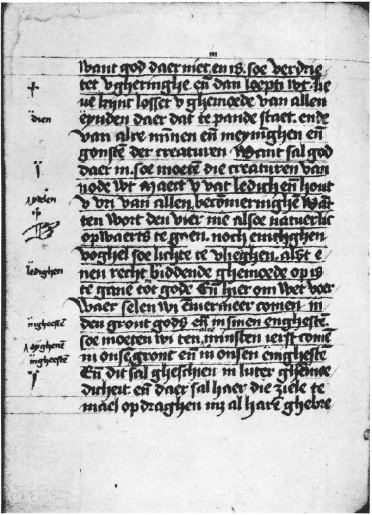 want god daer niet en is. soe verdrie
tet v gheringhe. eñ dan loepti wt. lie
ue kijnt losset v ghemoede van allen
eynden daer dat te pande staet. ende
van alre mīnen eñ meyninghen eñ
gonstē der creaturen Want sal god
daer in. soe moetē die creaturen van
node wt Maect v vat ledich eñ hout
v vri van allen becōmeringhe Wāt
ten wort den vier nie alsoe natuerlic
opwaerts te gaen. noch enighen
voghel soe lichte te vlieghen. als e
nen recht biddende ghemoede op is
te gane tot gode Eñ hier om wet voer
waer selen wi ēmermeer comen in
den gront gods eñ in sinen enghestē.
soe moeten wi ten minsten ierst comē
in onse gront eñ in onsen enghestē
Eñ dit sal gheschien in luter ghemoe
dicheit eñ daer sal haer die ziele te
mael opdraghen mz al harē ghebre
dien
ledighen
īngheestē
īngheestē